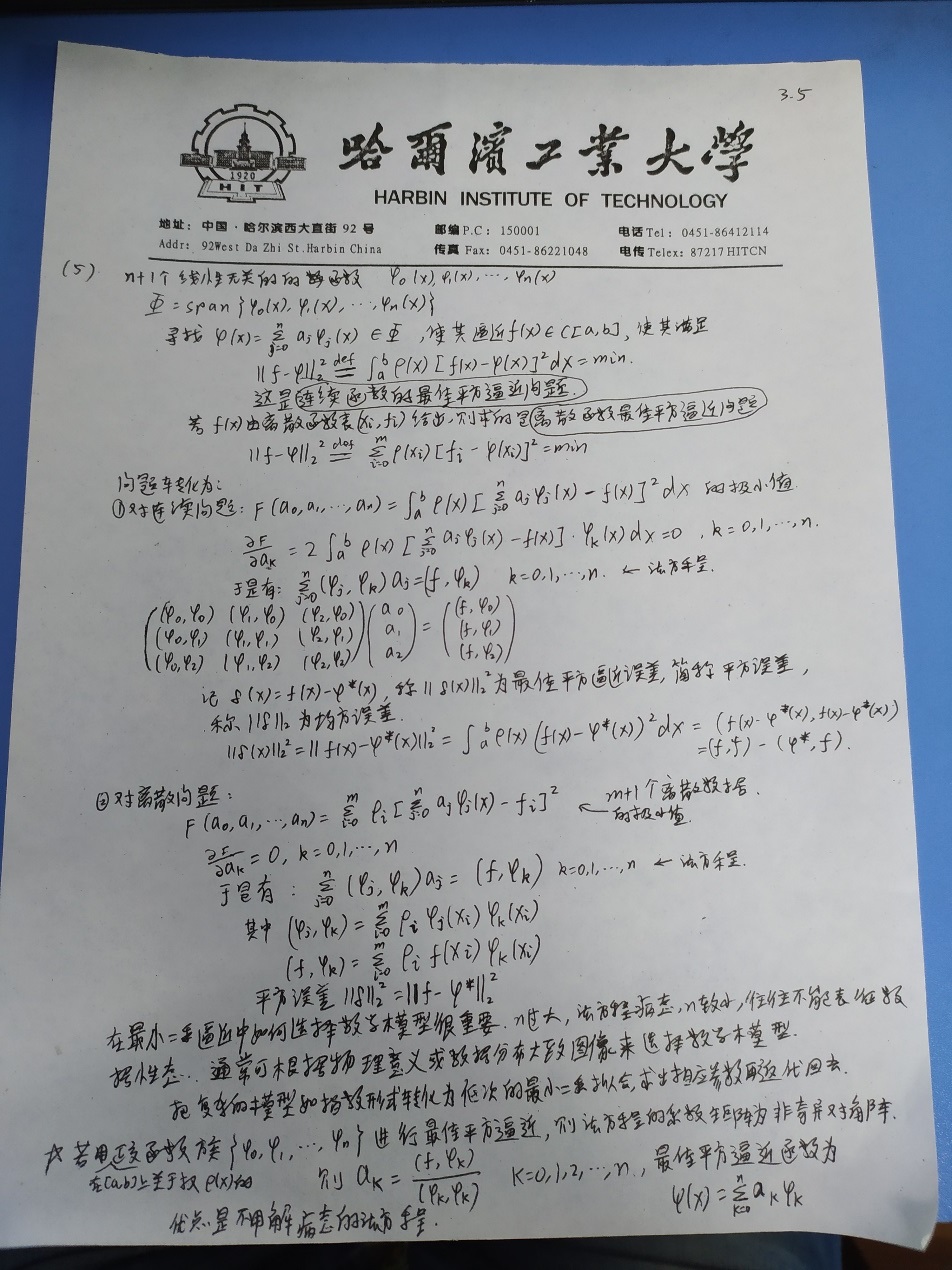 3.5
1920
HIT
哈爾濱工業大學
HARBIN INSTITUTE OF TECHNOLOGY
地址: 中国·哈尔滨西大直街 92 号 邮编 P.C: 150001 电话 Tel: 0451-86412114
Addr: 92West Da Zhi St.Harbin China 传真 Fax: 0451-86221048 电传 Telex: 87217 HITCN
(5) n+1个线性无关的的函数 φ₀(x), φ₁(x), ⋯, φn(x)
Φ = span{φ₀(x), φ₁(x), ⋯, φn(x)}
寻找 φ(x) = Σ_{j=0}^{n} aⱼφⱼ(x) ∈ Φ, 使其逼近 f(x) ∈ C[a,b], 使其满足
||f-φ||₂² ≝ ∫_a^b ρ(x)[f(x)-φ(x)]² dx = min.
这是连续函数的最佳平方逼近问题.
若 f(x) 由离散函数表 (xᵢ, fᵢ) 给出, 则求的是离散函数最佳平方逼近问题
||f-φ||₂² ≝ Σ_{i=0}^{m} ρ(xᵢ)[fᵢ - φ(xᵢ)]² = min
问题转化为:
①对连续问题: F(a₀, a₁, ⋯, an) = ∫_a^b ρ(x)[Σ_{j=0}^{n} aⱼφⱼ(x) - f(x)]² dx 的极小值.
∂F/∂a_k = 2∫_a^b ρ(x)[Σ_{j=0}^{n} aⱼφⱼ(x) - f(x)]·φ_k(x) dx = 0, k = 0,1,⋯,n.
于是有: Σ_{j=0}^{n} (φⱼ, φ_k) aⱼ = (f, φ_k) k=0,1,⋯,n. ← 法方程.
(φ₀,φ₀) (φ₁,φ₀) (φ₂,φ₀) a₀ (f,φ₀)
(φ₀,φ₁) (φ₁,φ₁) (φ₂,φ₁) a₁ = (f,φ₁)
(φ₀,φ₂) (φ₁,φ₂) (φ₂,φ₂) a₂ (f,φ₂)
记 δ(x) = f(x)-φ*(x), 称 ||δ(x)||₂² 为最佳平方逼近误差, 简称平方误差,
称 ||δ||₂ 为均方误差.
||δ(x)||₂² = ||f(x)-φ*(x)||₂² = ∫_a^b ρ(x)(f(x)-φ*(x))² dx = (f(x)-φ*(x), f(x)-φ*(x))
= (f,f) - (φ*,f).
②对离散问题:
F(a₀, a₁, ⋯, an) = Σ_{i=0}^{m} ρᵢ[Σ_{j=0}^{n} aⱼφⱼ(x) - fᵢ]² ← m+1个离散数据
的极小值.
∂F/∂a_k = 0, k = 0,1,⋯,n
于是有: Σ_{j=0}^{n} (φⱼ, φ_k) aⱼ = (f, φ_k) k=0,1,⋯,n ← 法方程.
其中 (φⱼ, φ_k) = Σ_{i=0}^{m} ρᵢ φⱼ(xᵢ) φ_k(xᵢ)
(f, φ_k) = Σ_{i=0}^{m} ρᵢ f(xᵢ) φ_k(xᵢ)
平方误差 ||δ||₂² = ||f-φ*||₂²
在最小二乘逼近中如何选择数学模型很重要. n过大, 法方程病态, n较小, 往往不能表征数
据性态. 通常可根据物理意义或数据分布大致图像来选择数学模型.
把复杂的模型如指数形式转化为低次的最小二乘拟合, 求出相应参数再返代回去.
☆若用正交函数族 {φ₀, φ₁, ⋯, φn} 进行最佳平方逼近, 则法方程的系数矩阵为非奇异对角阵.
在[a,b]上关于权ρ(x)的 则 a_k = (f, φ_k)/(φ_k, φ_k) k=0,1,2,⋯,n, 最佳平方逼近函数为
φ(x) = Σ_{k=0}^{n} a_k φ_k
优点是不用解病态的法方程.